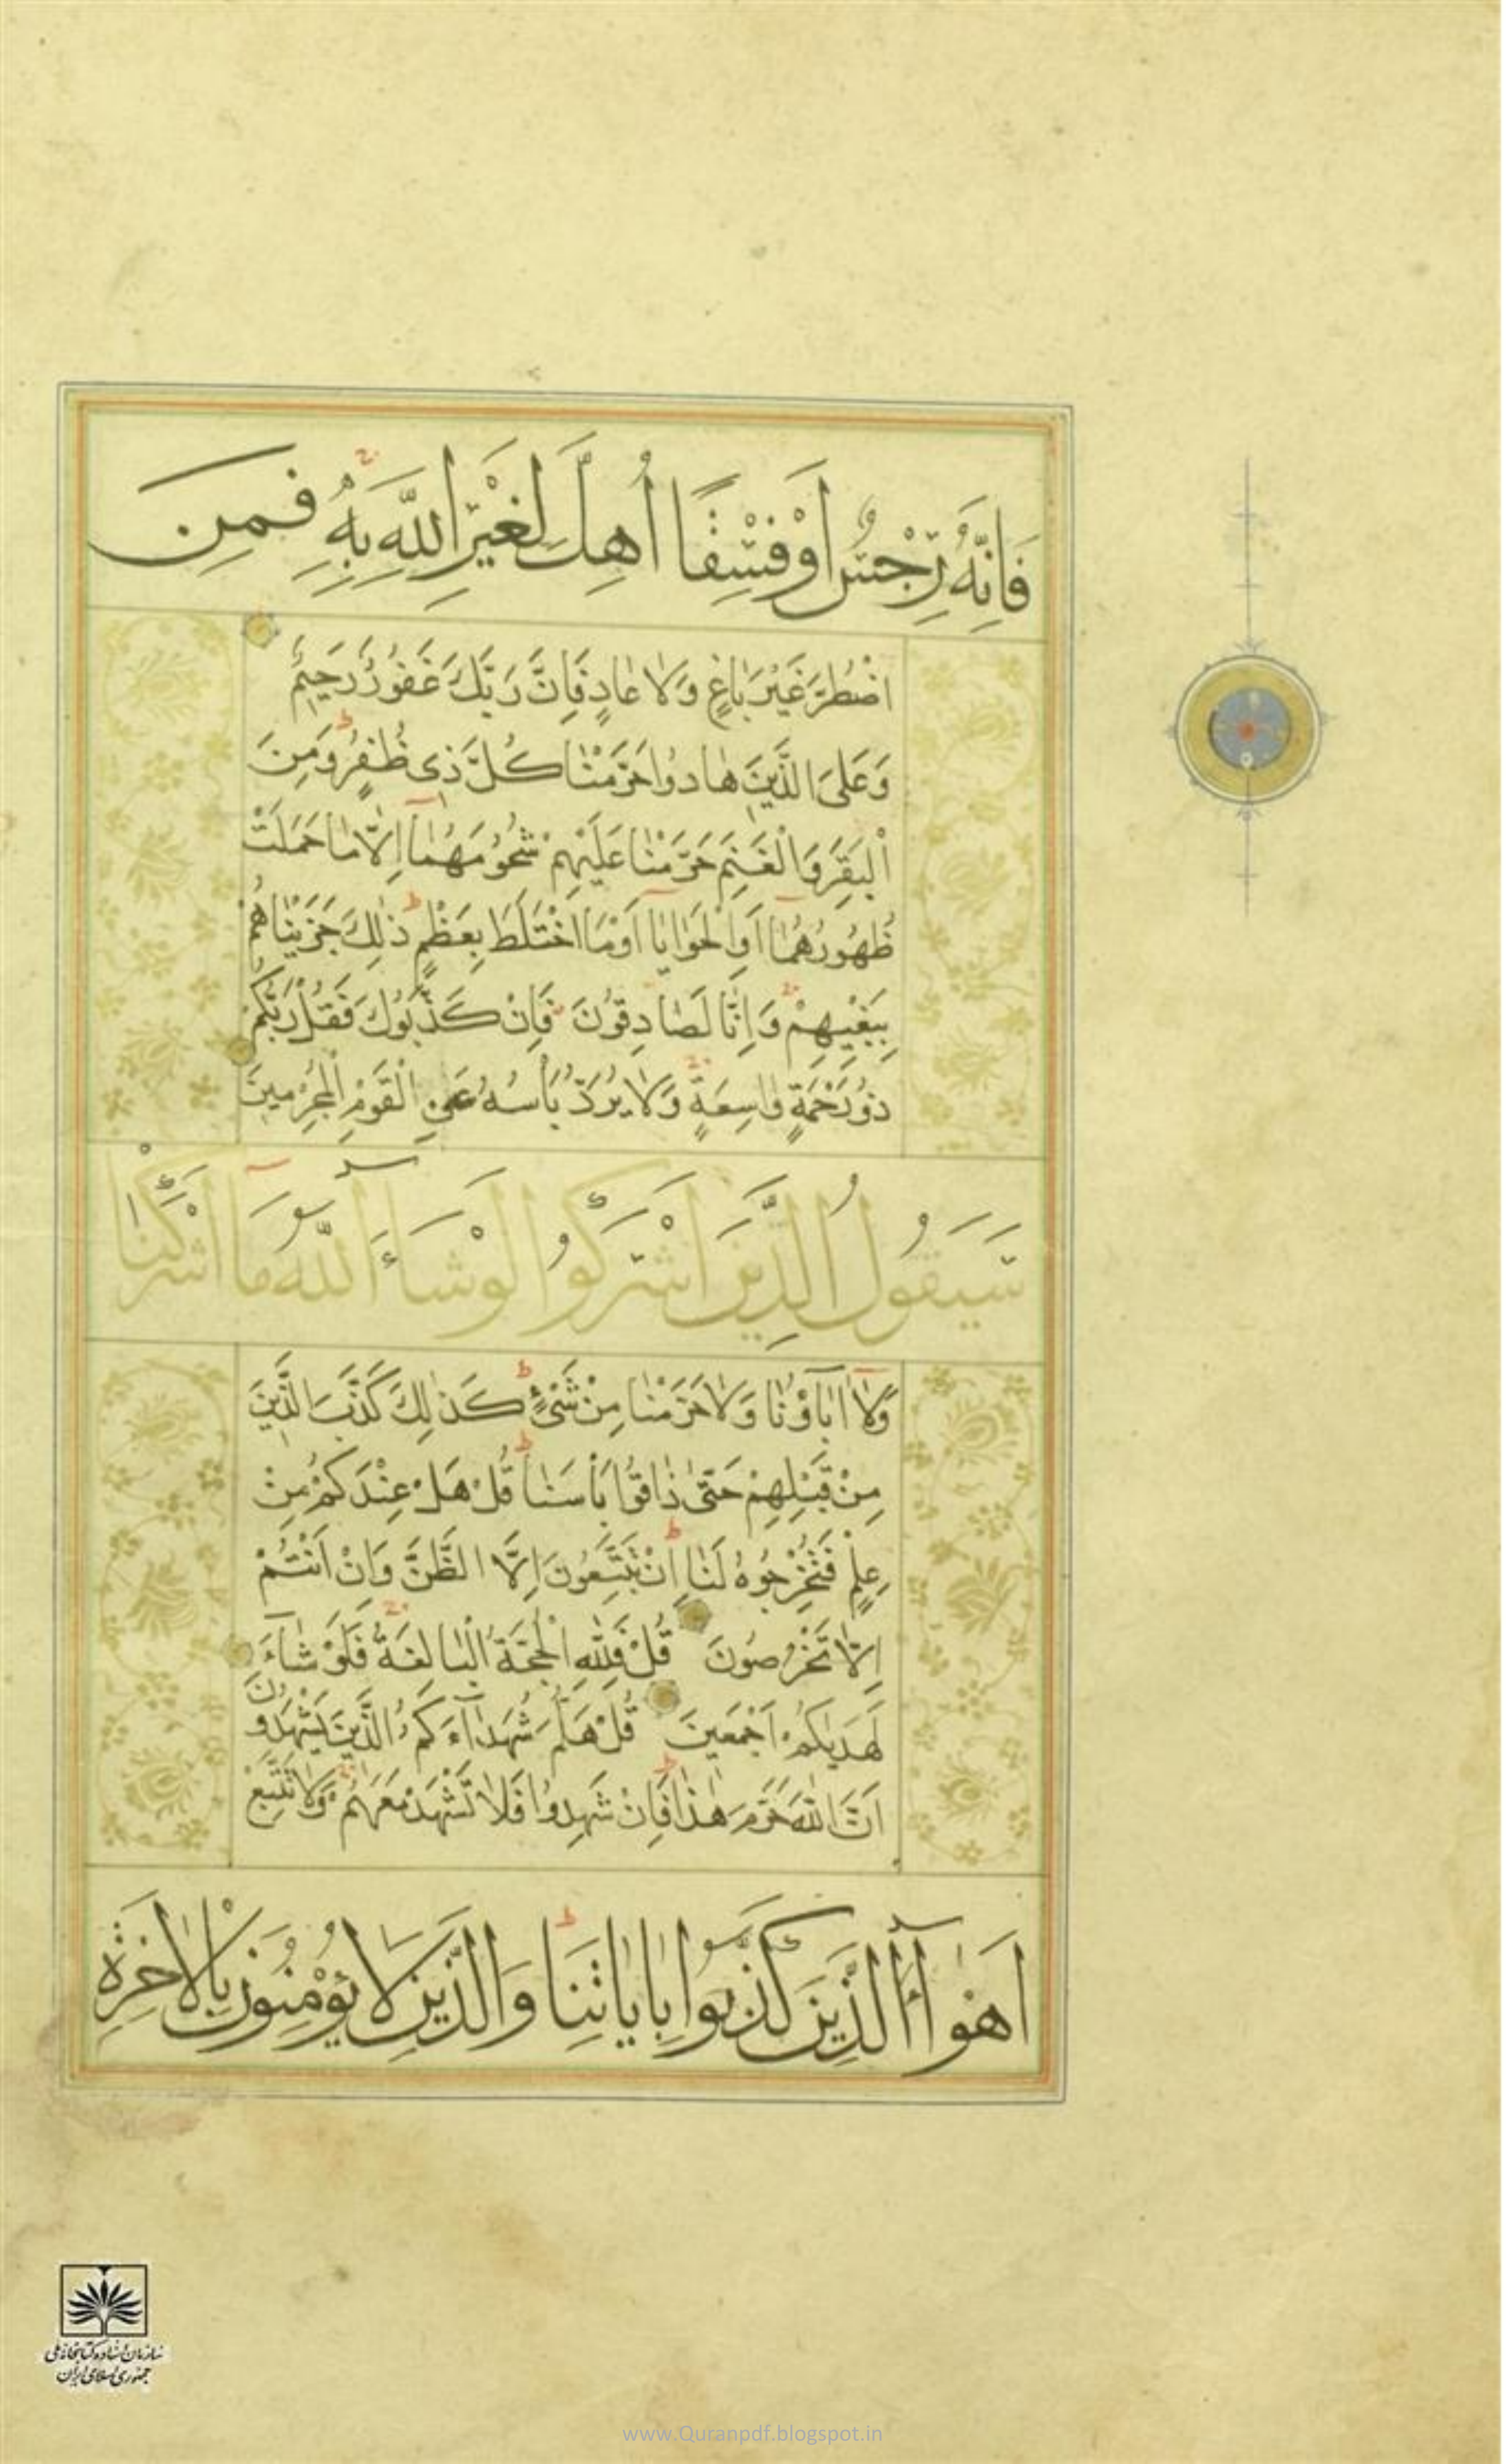 فَاِنَّهُ رِجْسٌ اَوْ فِسْقًا اُهِلَّ لِغَيْرِ اللّٰهِ بِهٖ فَمَنِ
اضْطُرَّ غَيْرَ بَاغٍ وَلَا عَادٍ فَاِنَّ رَبَّكَ غَفُورٌ رَحِيْمٌ
وَعَلَى الَّذِيْنَ هَادُوا حَرَّمْنَا كُلَّ ذِي ظُفُرٍ وَمِنَ
الْبَقَرِ وَالْغَنَمِ حَرَّمْنَا عَلَيْهِمْ شُحُوْمَهُمَا اِلَّا مَا حَمَلَتْ
ظُهُوْرُهُمَا اَوِ الْحَوَايَا اَوْ مَا اخْتَلَطَ بِعَظْمٍ ذٰلِكَ جَزَيْنَاهُمْ
بِبَغْيِهِمْ وَاِنَّا لَصَادِقُوْنَ فَاِنْ كَذَّبُوْكَ فَقُلْ رَبُّكُمْ
ذُوْ رَحْمَةٍ وَاسِعَةٍ وَلَا يُرَدُّ بَأْسُهُ عَنِ الْقَوْمِ الْمُجْرِمِيْنَ
سَيَقُوْلُ الَّذِيْنَ اَشْرَكُوْا لَوْ شَآءَ اللّٰهُ مَا اَشْرَكْنَا
وَلَا اٰبَاؤُنَا وَلَا حَرَّمْنَا مِنْ شَيْءٍ كَذٰلِكَ كَذَّبَ الَّذِيْنَ
مِنْ قَبْلِهِمْ حَتّٰى ذَاقُوْا بَأْسَنَا قُلْ هَلْ عِنْدَكُمْ مِنْ
عِلْمٍ فَتُخْرِجُوْهُ لَنَا اِنْ تَتَّبِعُوْنَ اِلَّا الظَّنَّ وَاِنْ اَنْتُمْ
اِلَّا تَخْرُصُوْنَ قُلْ فَلِلّٰهِ الْحُجَّةُ الْبَالِغَةُ فَلَوْ شَآءَ
لَهَدٰيكُمْ اَجْمَعِيْنَ قُلْ هَلُمَّ شُهَدَآءَكُمُ الَّذِيْنَ يَشْهَدُوْنَ
اَنَّ اللّٰهَ حَرَّمَ هٰذَا فَاِنْ شَهِدُوْا فَلَا تَشْهَدْ مَعَهُمْ وَلَا تَتَّبِعْ
اَهْوَآءَ الَّذِيْنَ كَذَّبُوْا بِاٰيَاتِنَا وَالَّذِيْنَ لَا يُؤْمِنُوْنَ بِالْاٰخِرَةِ
سازمان اسناد و کتابخانه ملی
جمهوری اسلامی ایران
www.Quranpdf.blogspot.in